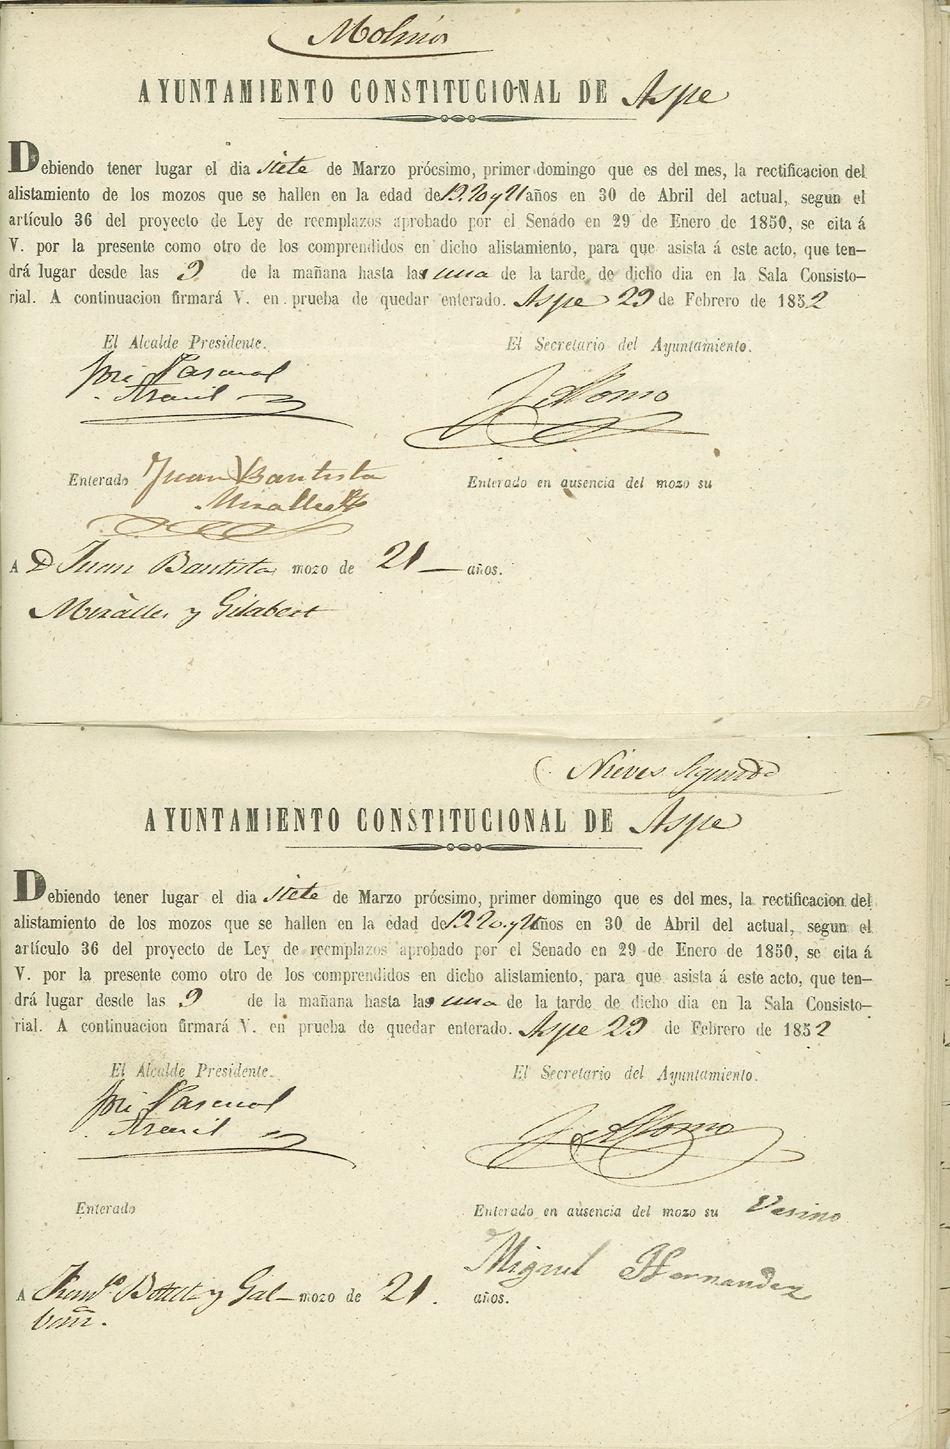 Molinos
AYUNTAMIENTO CONSTITUCIONAL DE Aspe
Debiendo tener lugar el dia siete de Marzo prócsimo, primer domingo que es del mes, la rectificacion del
alistamiento de los mozos que se hallen en la edad de 19. 20 y 21 años en 30 de Abril del actual, segun el
artículo 36 del proyecto de Ley de reemplazos aprobado por el Senado en 29 de Enero de 1850, se cita á
V. por la presente como otro de los comprendidos en dicho alistamiento, para que asista á este acto, que ten-
drá lugar desde las 9 de la mañana hasta las una de la tarde de dicho dia en la Sala Consisto-
rial. A continuacion firmará V. en prueba de quedar enterado. Aspe 29 de Febrero de 1852
El Alcalde Presidente. El Secretario del Ayuntamiento.
José Pascual
J. Alonso
Enterado Juan Bautista Enterado en ausencia del mozo su
Miralles
A D Juan Bautista mozo de 21 años.
Miralles y Gilabert
Nieves Segunda
AYUNTAMIENTO CONSTITUCIONAL DE Aspe
Debiendo tener lugar el dia siete de Marzo prócsimo, primer domingo que es del mes, la rectificacion del
alistamiento de los mozos que se hallen en la edad de 19. 20. y 21 años en 30 de Abril del actual, segun el
artículo 36 del proyecto de Ley de reemplazos aprobado por el Senado en 29 de Enero de 1850, se cita á
V. por la presente como otro de los comprendidos en dicho alistamiento, para que asista á este acto, que ten-
drá lugar desde las 9 de la mañana hasta las una de la tarde de dicho dia en la Sala Consisto-
rial. A continuacion firmará V. en prueba de quedar enterado. Aspe 29 de Febrero de 1852
El Alcalde Presidente. El Secretario del Ayuntamiento.
José Pascual
J. Alonso
Enterado Enterado en ausencia del mozo su Vesino
Miguel Hernandez
A Fran.co Botella y Gal- mozo de 21. años.